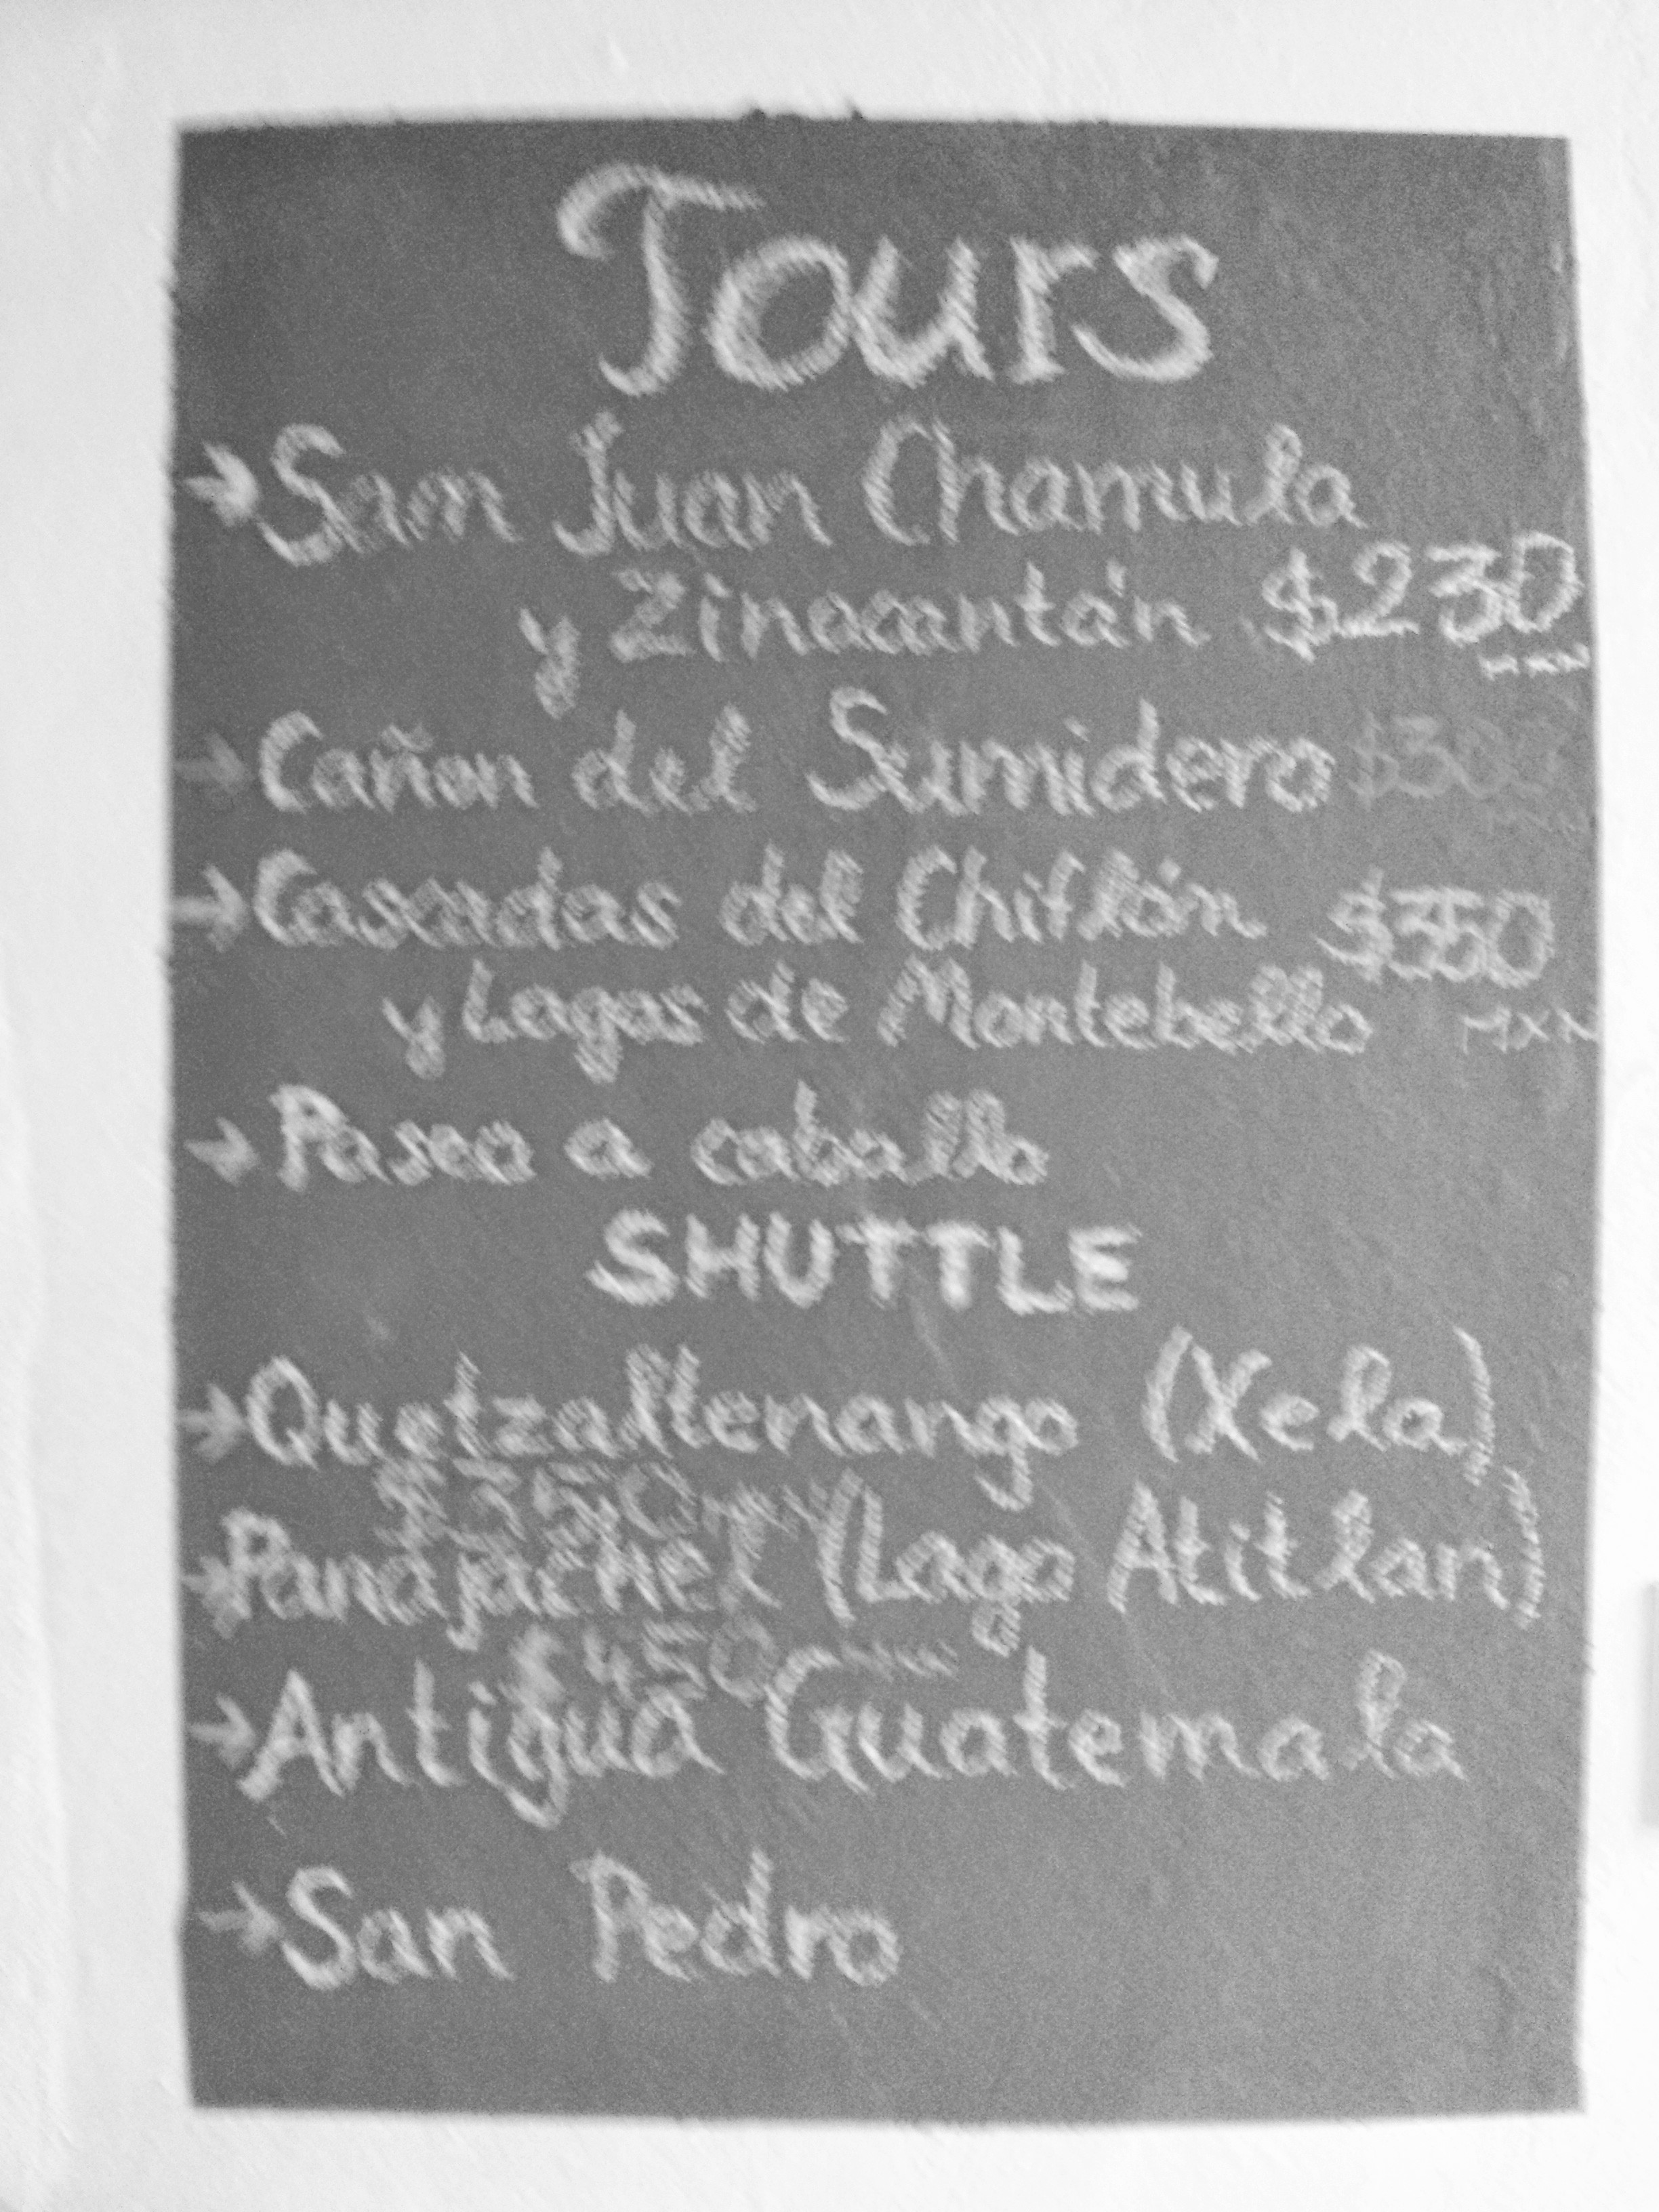 Tours
→ San Juan Chamula
y Zinacantán $230
MXN
→ Cañon del Sumidero
→ Cascadas del Chiflón $350
y Lagos de Montebello MXN
→ Paseo a caballo
SHUTTLE
→ Quetzaltenango (Xela)
$350
→ Panajachel (Lago Atitlan)
$450
→ Antigua Guatemala
→ San Pedro